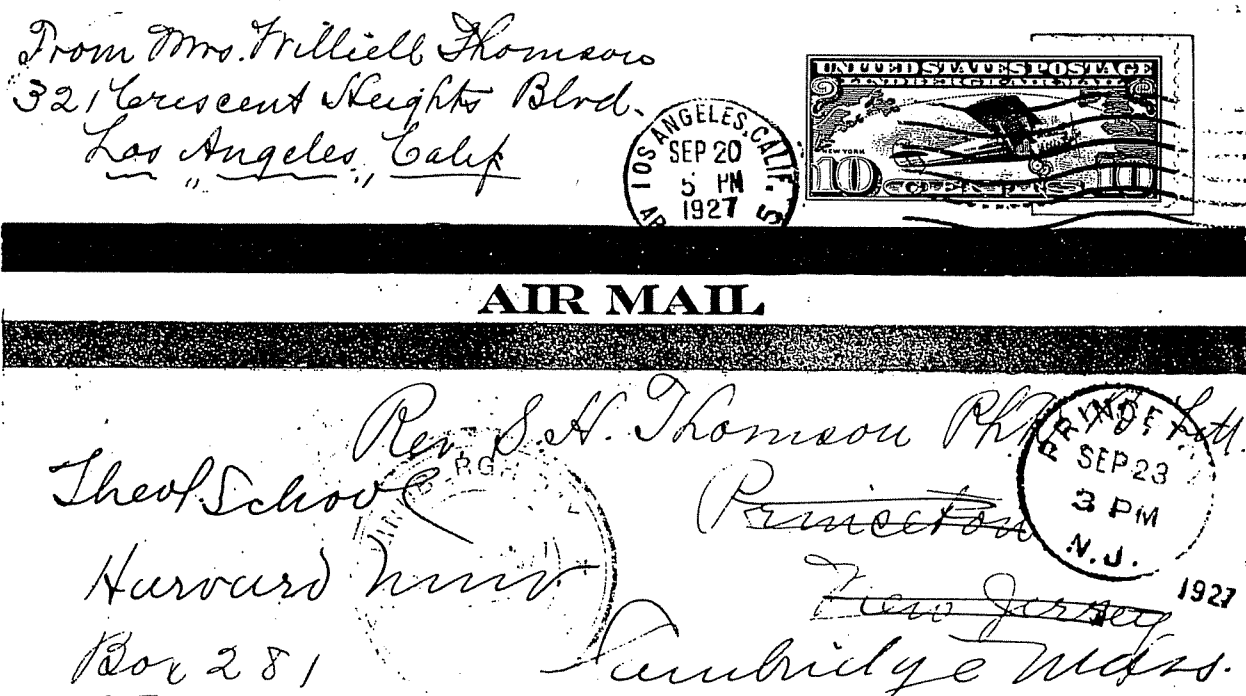 From Mrs. Williell Thomson
321 Crescent Heights Blvd.
Los Angeles, Calif
LOS ANGELES, CALIF.
SEP 20
5 PM
1927
UNITED STATES POSTAGE
LINDBERGH AIR MAIL
NEW YORK
10 CENTS 10
AIR MAIL
Rev. S. H. Thomson Ph. Litt.
Princeton
New Jersey
PRINCET
SEP 23
3 PM
N.J.
1927
Theol. School
Harvard Univ
Box 281
Cambridge Mass.